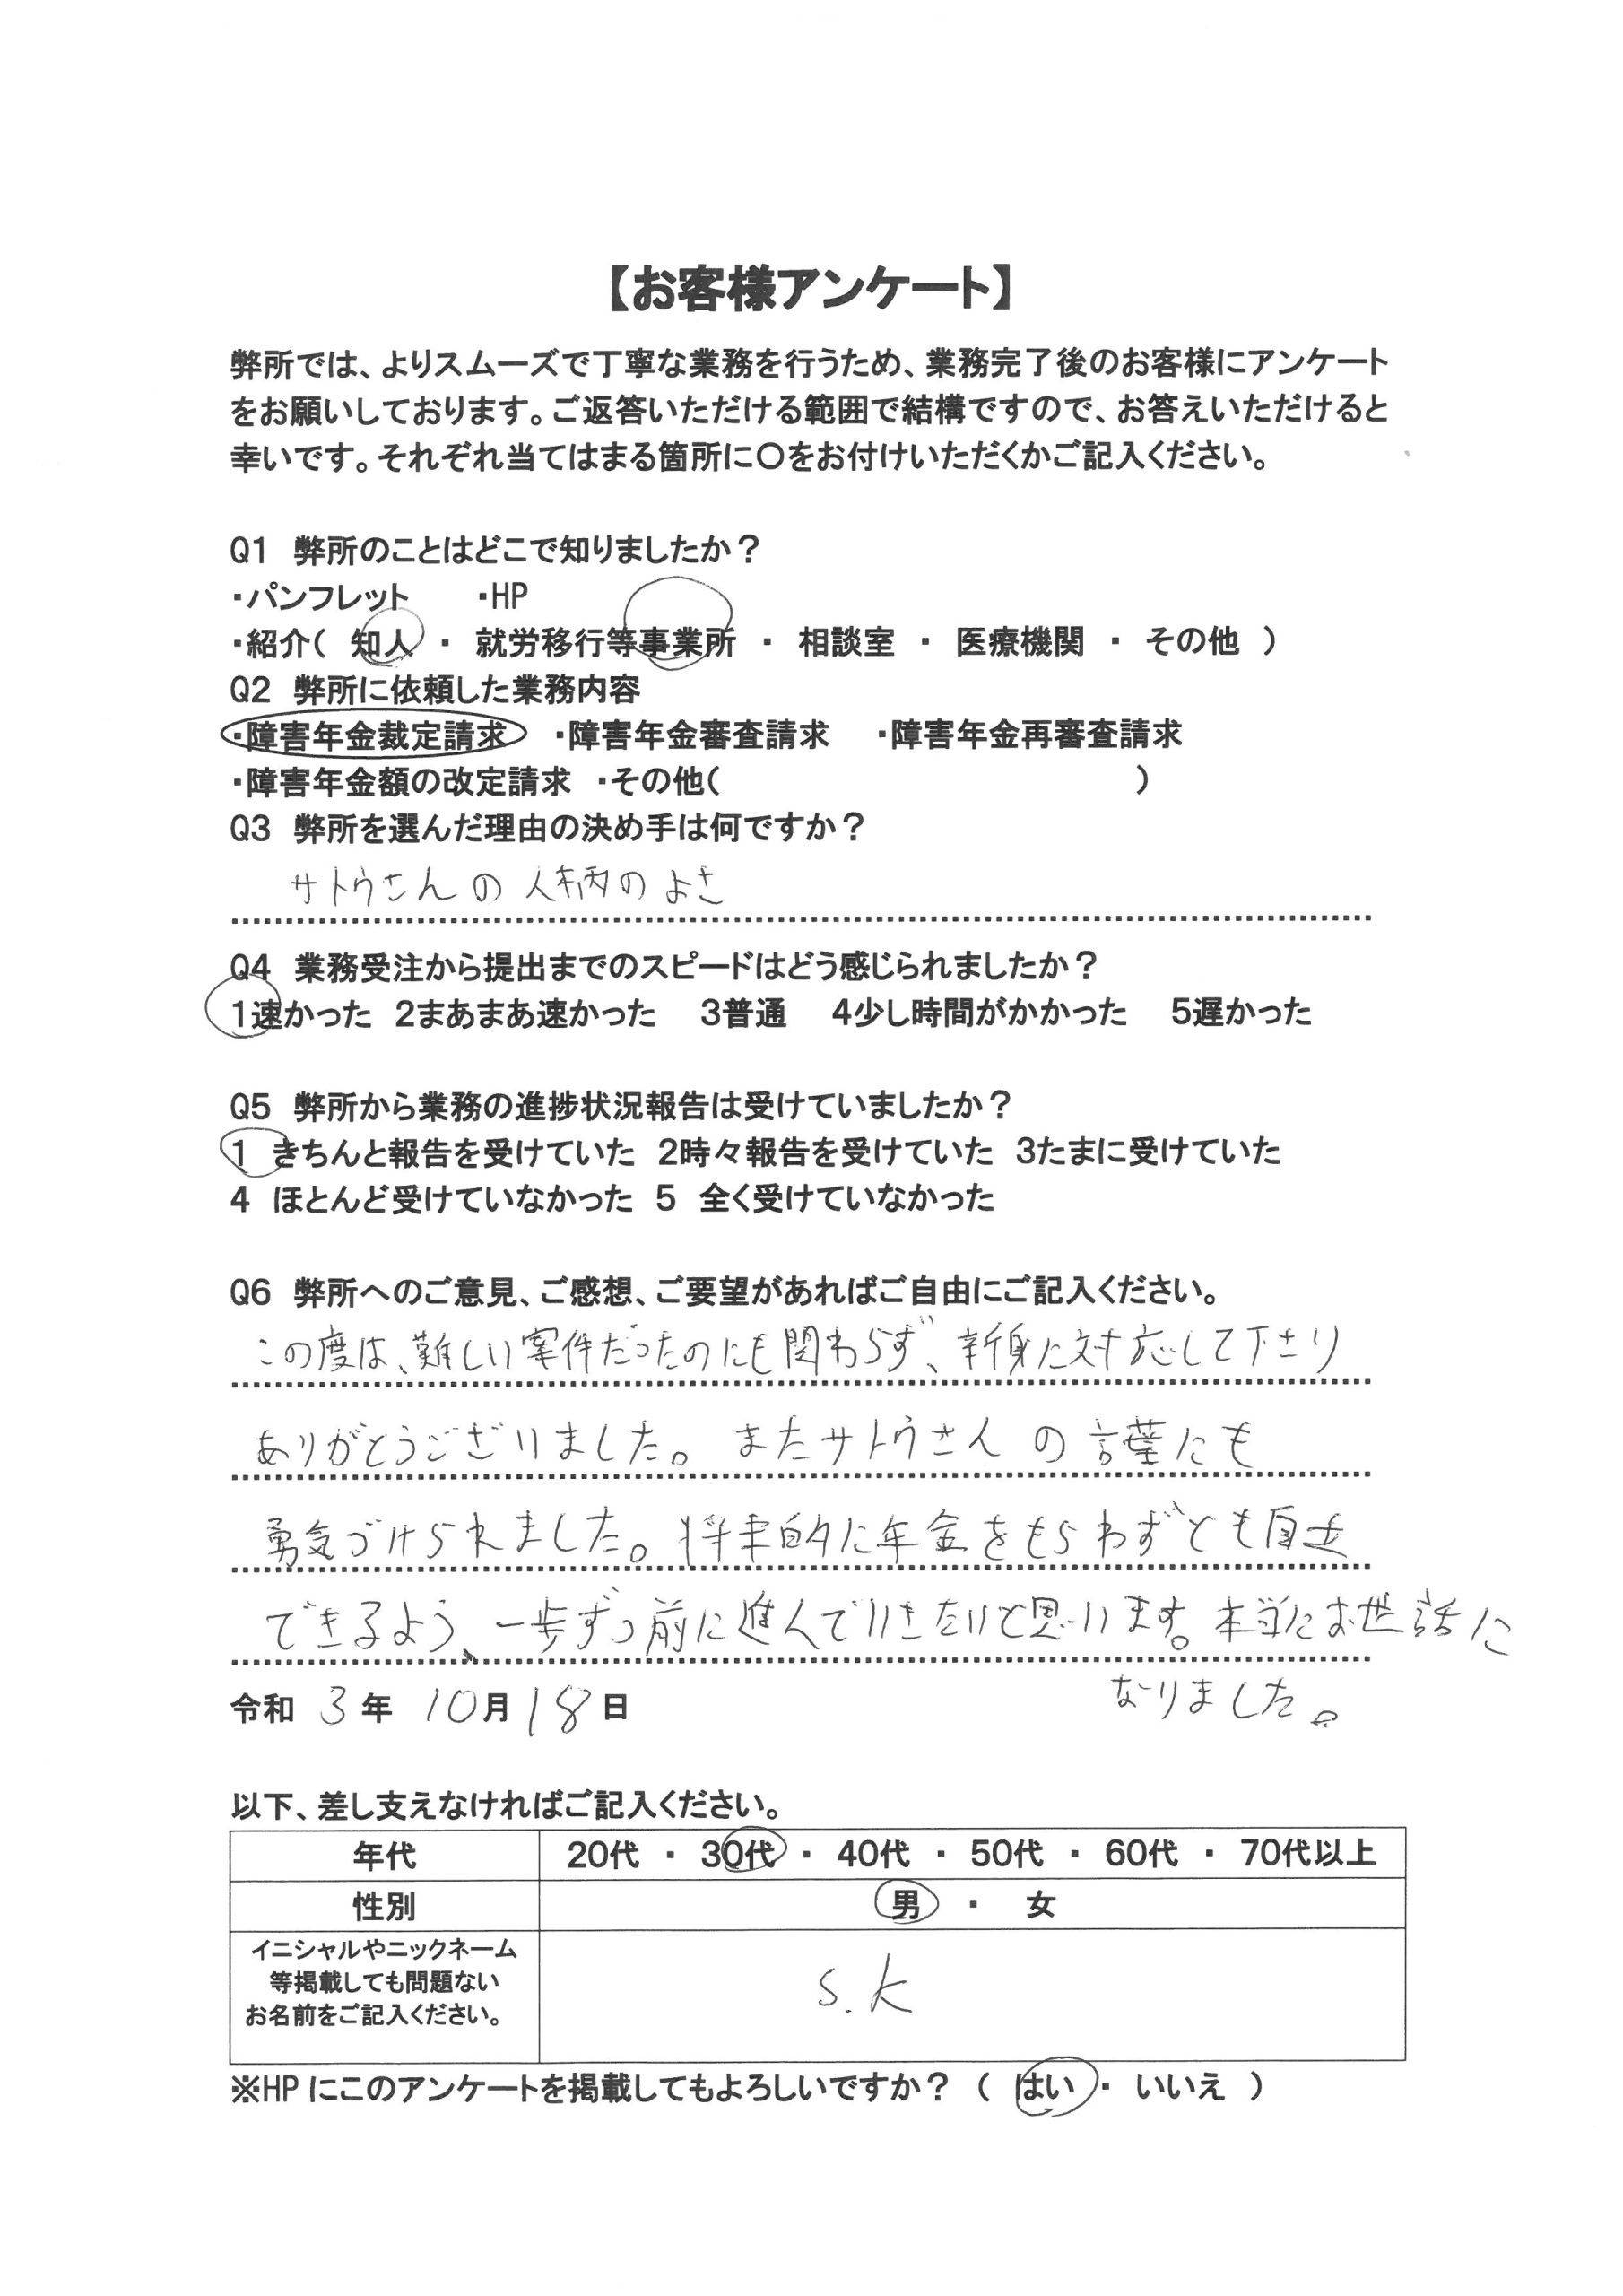 【お客様アンケート】
弊所では、よりスムーズで丁寧な業務を行うため、業務完了後のお客様にアンケート
をお願いしております。ご返答いただける範囲で結構ですので、お答えいただけると
幸いです。それぞれ当てはまる箇所に〇をお付けいただくかご記入ください。
Q1 弊所のことはどこで知りましたか？
・パンフレット ・HP
・紹介（ 知人 ・ 就労移行等事業所 ・ 相談室 ・ 医療機関 ・ その他 ）
Q2 弊所に依頼した業務内容
・障害年金裁定請求 ・障害年金審査請求 ・障害年金再審査請求
・障害年金額の改定請求 ・その他（ ）
Q3 弊所を選んだ理由の決め手は何ですか？
サトウさんの人柄のよさ
Q4 業務受注から提出までのスピードはどう感じられましたか？
1速かった 2まあまあ速かった 3普通 4少し時間がかかった 5遅かった
Q5 弊所から業務の進捗状況報告は受けていましたか？
1 きちんと報告を受けていた 2時々報告を受けていた 3たまに受けていた
4 ほとんど受けていなかった 5 全く受けていなかった
Q6 弊所へのご意見、ご感想、ご要望があればご自由にご記入ください。
この度は、難しい案件だったのにも関わらず、新身に対応して下さり
ありがとうございました。またサトウさんの言葉にも
勇気づけられました。将来的に年金をもらわずとも自立
できるよう、一歩ずつ前に進んでいきたいと思います。本当にお世話に
なりました。
令和 3 年 10 月 18 日
以下、差し支えなければご記入ください。
年代 20代 ・ 30代 ・ 40代 ・ 50代 ・ 60代 ・ 70代以上
性別 男 ・ 女
イニシャルやニックネーム
等掲載しても問題ない
お名前をご記入ください。
S.K
※HPにこのアンケートを掲載してもよろしいですか？（ はい ・ いいえ ）